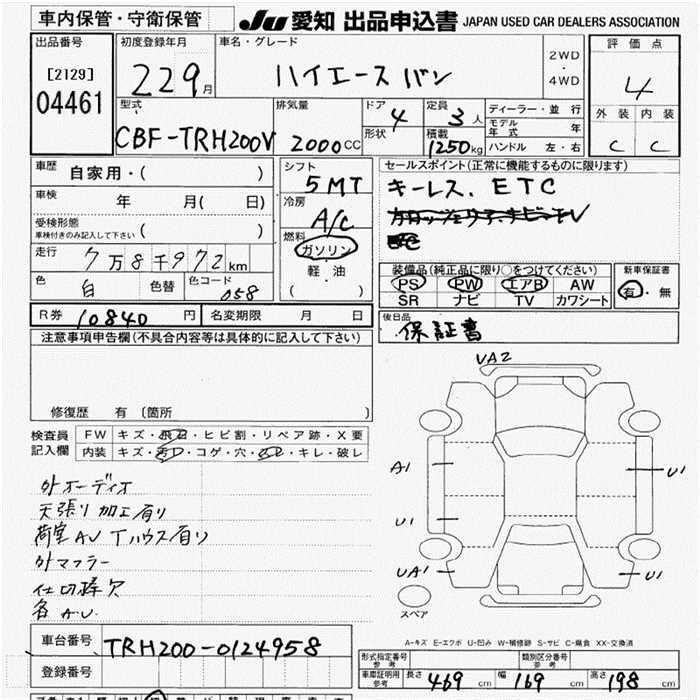 車内保管・守衛保管
JU 愛知 出品申込書 JAPAN USED CAR DEALERS ASSOCIATION
出品番号
[2129]
04461
初度登録年月
22 9月
車名・グレード
ハイエースバン
2WD
・
4WD
評価点
4
外装 内装
C C
型式
CBF-TRH200V
排気量
2000cc
ドア
4
形状
定員
3人
積載
1250kg
ディーラー・並行
モデル年式 年
ハンドル 左・右
車歴 自家用・( )
車検 年 月( 日)
受検形態
車検付きのみ記入して下さい ( )
走行 7万8千972km
色 白 色替 色コード 058
シフト
5MT
冷房
A/C
燃料
ガソリン
・
軽油
( )
セールスポイント(正常に機能するものに限ります)
キーレス、ETC
装備品(純正品に限り○をつけてください)
PS PW エアB AW
SR ナビ TV カワシート
新車保証書
有・無
R券 10840円 名変期限 月 日
後日品
保証書
注意事項申告欄(不具合内容等は具体的に記入して下さい)
修復歴 有(箇所 )
検査員記入欄
FW キズ・飛石・ヒビ割・リペア跡・X要
内装 キズ・汚レ・コゲ・穴・スレ・キレ・破レ
外オーディオ
天張り加工有り
荷室AUTハウス有り
外マフラー
仕切棒欠
各A.U.
VA2
A1
U1
U1
UA1
U1
スペア
A-キズ E-エクボ U-凹み W-補修跡 S-サビ C-腐食 XX-交換済
車台番号 TRH200-0124958
登録番号
形式指定番号
参考
類別区分番号
参考
車庫証明用
参考
長さ 469cm 幅 169cm 高さ 198cm